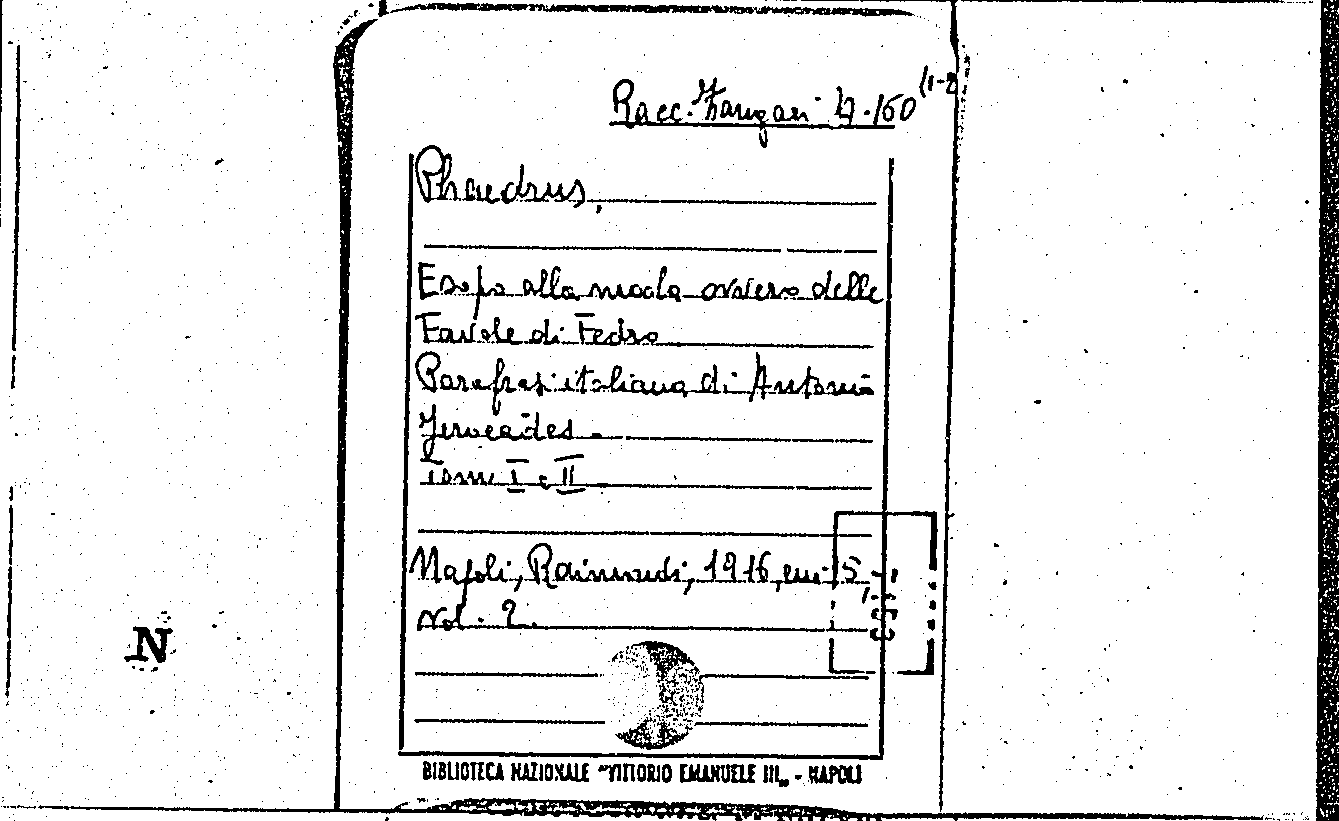 Racc. Zangari 4.160 (1-2
Phaedrus,
Esopo alla moda ovvero delle
Favole di Fedro
Parafrasi italiana di Antonio
Jerocades.
Tomi I e II
Napoli, Raimondi, 1916, in-15,
Vol. 2.
N
BIBLIOTECA NAZIONALE "VITTORIO EMANUELE III" - NAPOLI